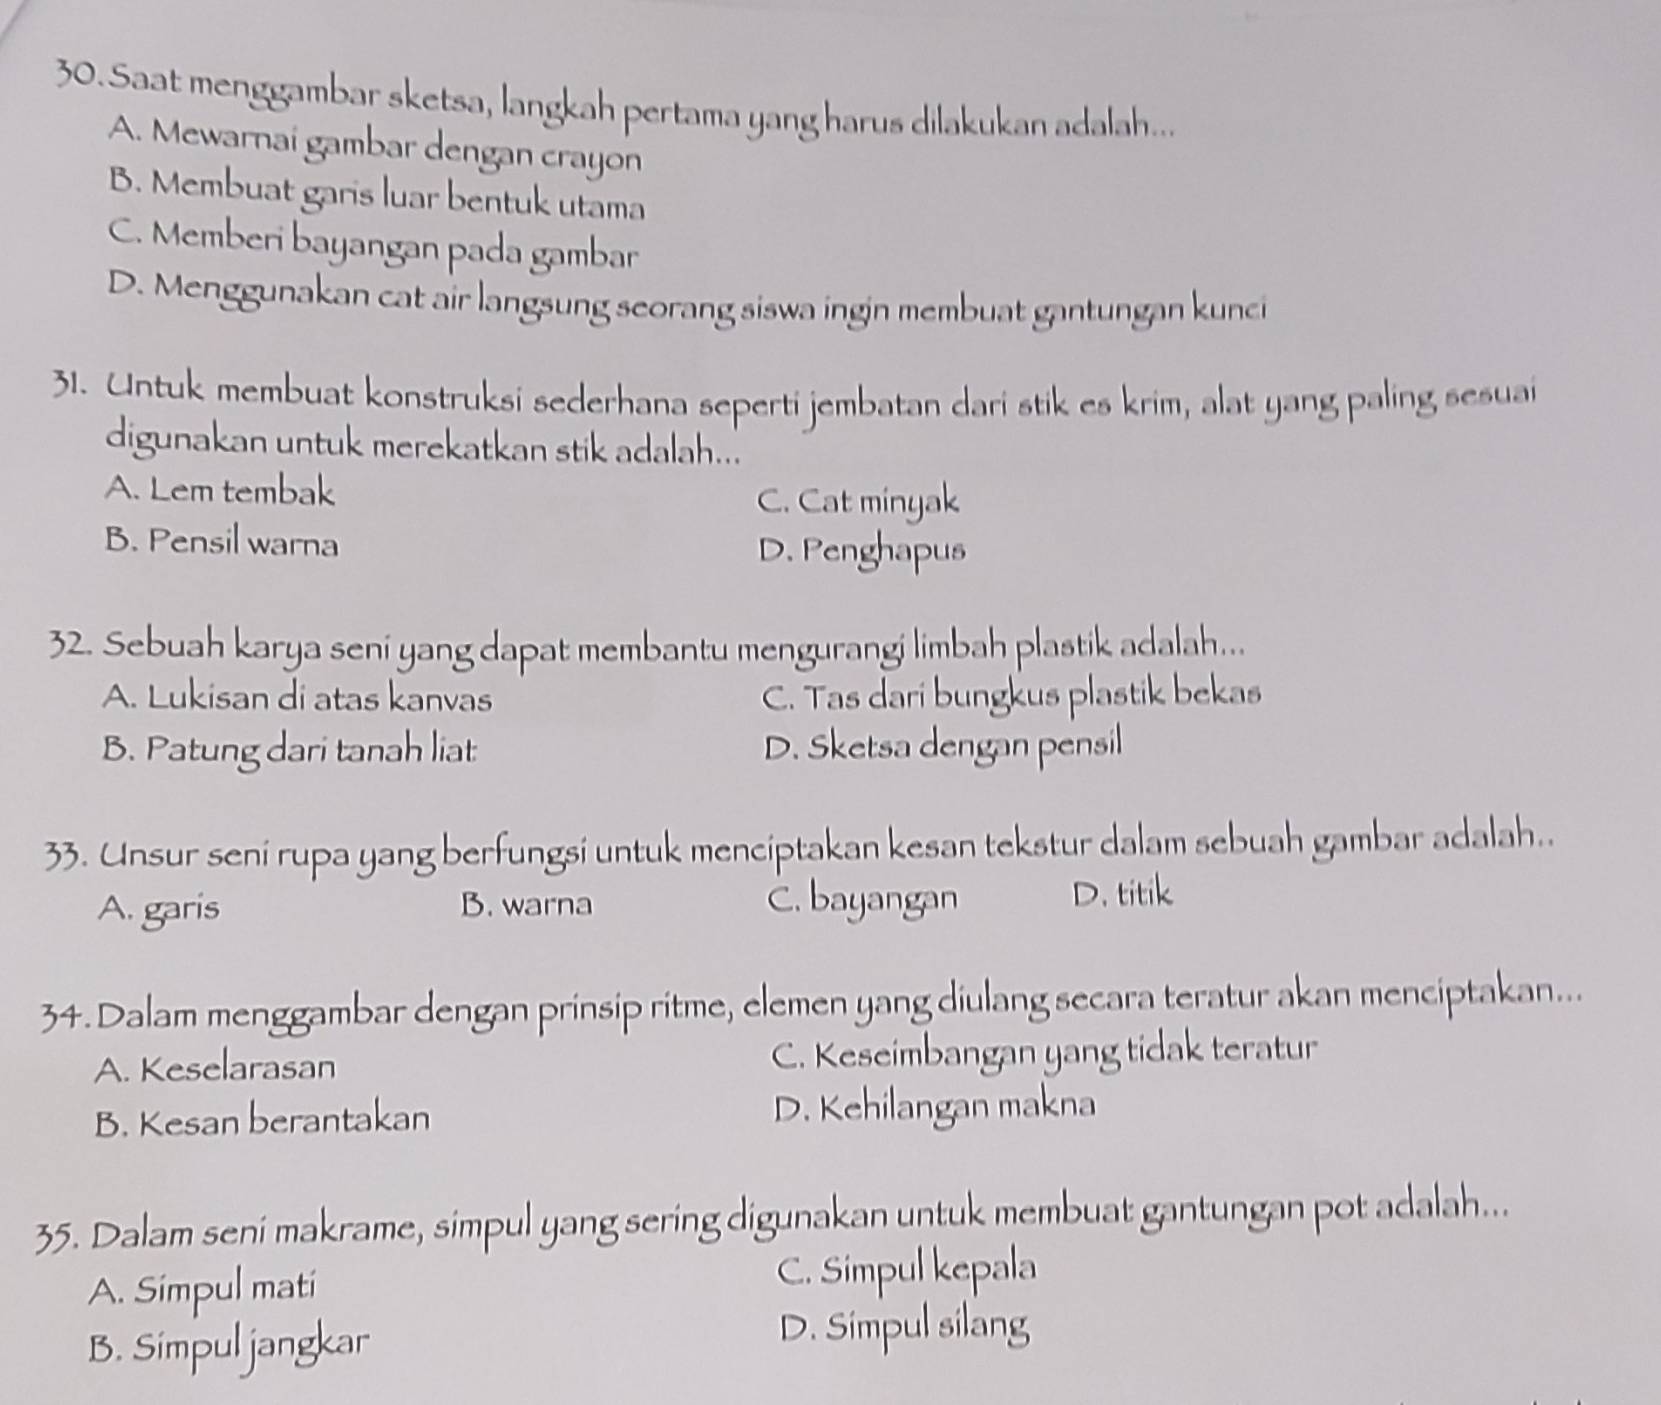 30. Saat menggambar sketsa, langkah pertama yang harus dilakukan adalah...
A. Mewarnai gambar dengan crayon
B. Membuat garis luar bentuk utama
C. Memberi bayangan pada gambar
D. Menggunakan cat air langsung seorang siswa ingin membuat gantungan kunci
31. Untuk membuat konstruksi sederhana seperti jembatan dari stik es krim, alat yang paling sesuai
digunakan untuk merekatkan stik adalah...
A. Lem tembak
C. Cat minyak
B. Pensil warna
D. Penghapus
32. Sebuah karya seni yang dapat membantu mengurangi limbah plastik adalah...
A. Lukisan di atas kanvas
C. Tas dari bungkus plastik bekas
B. Patung dari tanah liat
D. Sketsa dengan pensil
33. Unsur seni rupa yang berfungsi untuk menciptakan kesan tekstur dalam sebuah gambar adalah..
A. garis B. warna C. bayangan D. titik
34. Dalam menggambar dengan prinsip ritme, elemen yang diulang secara teratur akan menciptakan...
A. Keselarasan
C. Keseimbangan yang tidak teratur
B. Kesan berantakan
D. Kehilangan makna
35. Dalam seni makrame, simpul yang sering digunakan untuk membuat gantungan pot adalah...
A. Simpul mati
C. Simpul kepala
B. Simpul jangkar
D. Simpul silang